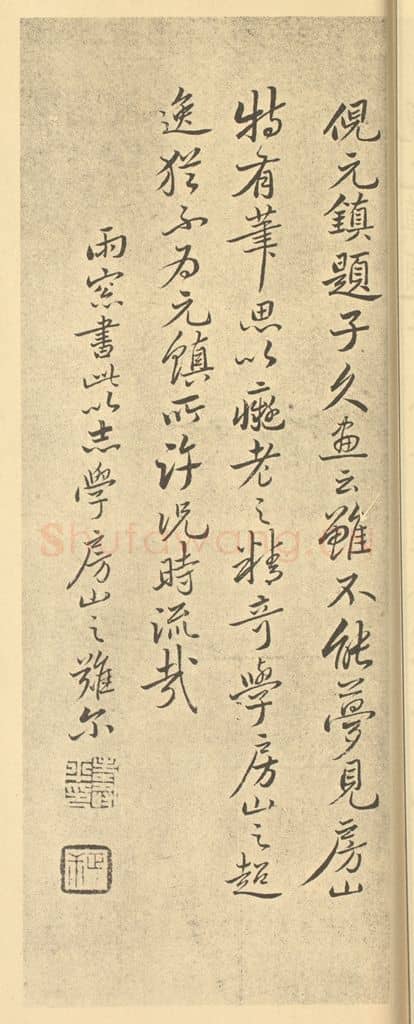 倪元鎮題子久畫云雖不能夢見房山
特有筆思以癡老之精奇學房山之超
逸猶不為元鎮所許況時流哉
雨窓書此以志學房山之難尔
Shufawang.cn